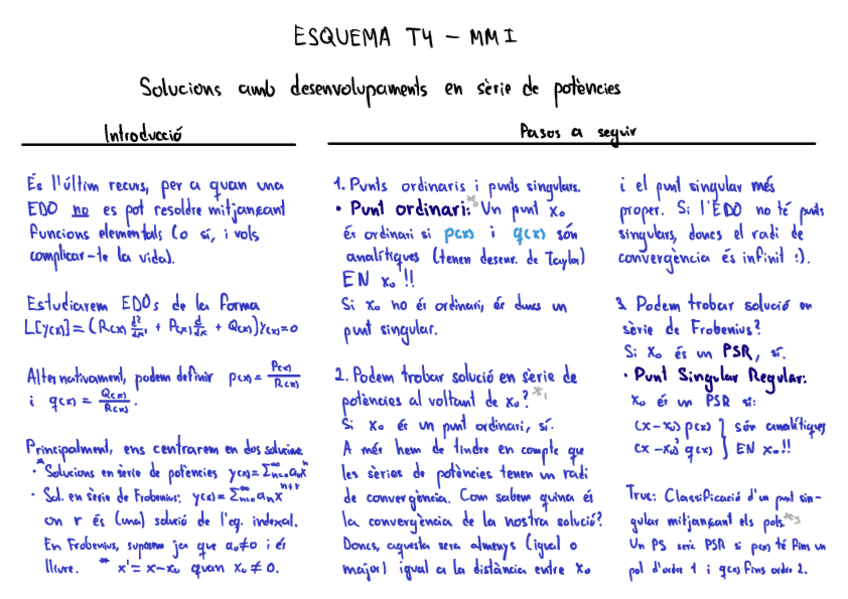 ESQUEMA T4 - MMI
Solucions amb desenvolupaments en sèrie de potències
Introducció
És l'últim recurs, per a quan una
EDO no es pot resoldre mitjançant
funcions elementals (o sí, i vols
complicar-te la vida).
Estudiarem EDOs de la forma
L[y(x)] = (R(x) d²/dx² + P(x) d/dx + Q(x)) y(x) = 0
Alternativament, podem definir p(x) = P(x)/R(x)
i q(x) = Q(x)/R(x).
Principalment, ens centrarem en dos solucions
* · Solucions en sèrie de potències y(x) = Σ∞n=0 aₙxⁿ
· Sol. en sèrie de Frobenius: y(x) = Σ∞n=0 aₙxⁿ⁺ʳ
on r és (una) solució de l'eq. indexal.
En Frobenius, suposem ja que a₀≠0 i és
lliure. * x' = x-x₀ quan x₀ ≠ 0.
Pasos a seguir
1. Punts ordinaris i punts singulars.
· Punt ordinari:* Un punt x₀
és ordinari si p(x) i q(x) són
analítiques (tenen desenv. de Taylor)
EN x₀!!
Si x₀ no és ordinari, és doncs un
punt singular.
2. Podem trobar solució en sèrie de
potències al voltant de x₀? *₁
Si x₀ és un punt ordinari, sí.
A més hem de tindre en compte que
les sèries de potències tenen un radi
de convergència. Com sabem quina és
la convergència de la nostra solució?
Doncs, aquesta serà almenys (igual o
major) igual a la distància entre x₀
i el punt singular més
proper. Si l'EDO no té punts
singulars, doncs el radi de
convergència és infinit :).
3. Podem trobar solució en
sèrie de Frobenius?
Si x₀ és un PSR, sí.
· Punt Singular Regular:
x₀ és un PSR si:
(x-x₀) p(x) } són analítiques
(x-x₀)² q(x) } EN x₀!!
Truc: Classificació d'un punt sin-
gular mitjançant els pols.*₃
Un PS serà PSR si p(x) té fins un
pol d'ordre 1 i q(x) fins ordre 2.